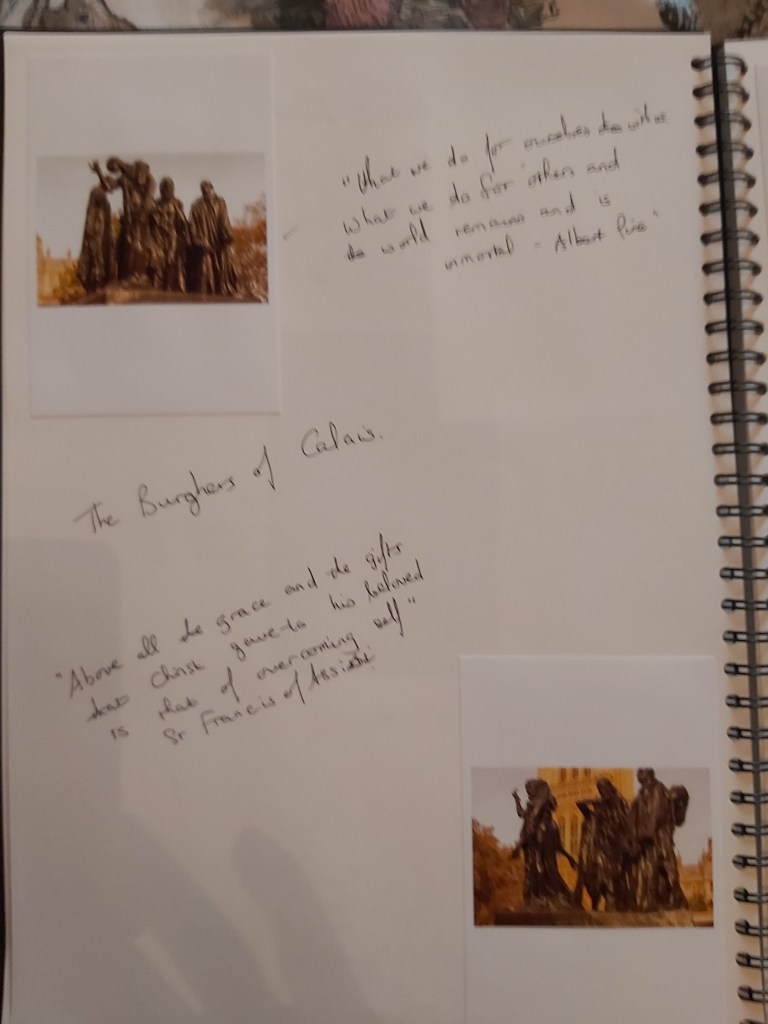 "What we do for ourselves dies with us
what we do for others and
the world remains and is
immortal - Albert Pire"
The Burghers of Calais.
"Above all the grace and the gifts
that Christ gave to his beloved
is that of overcoming self"
St Francis of Assisi